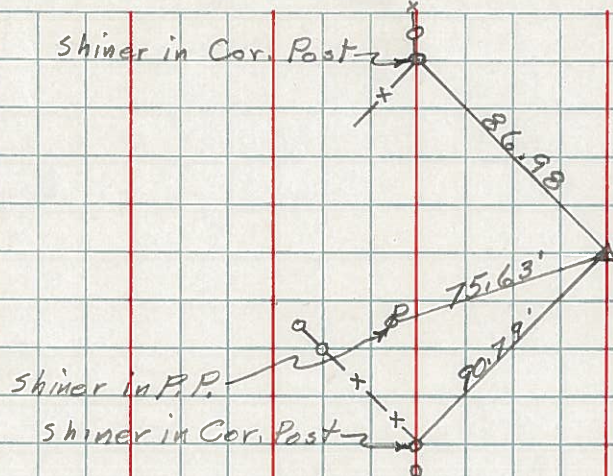 Shiner in Cor. Post
86.98
75.63'
P
90.79'
Shiner in P.P.
Shiner in Cor. Post